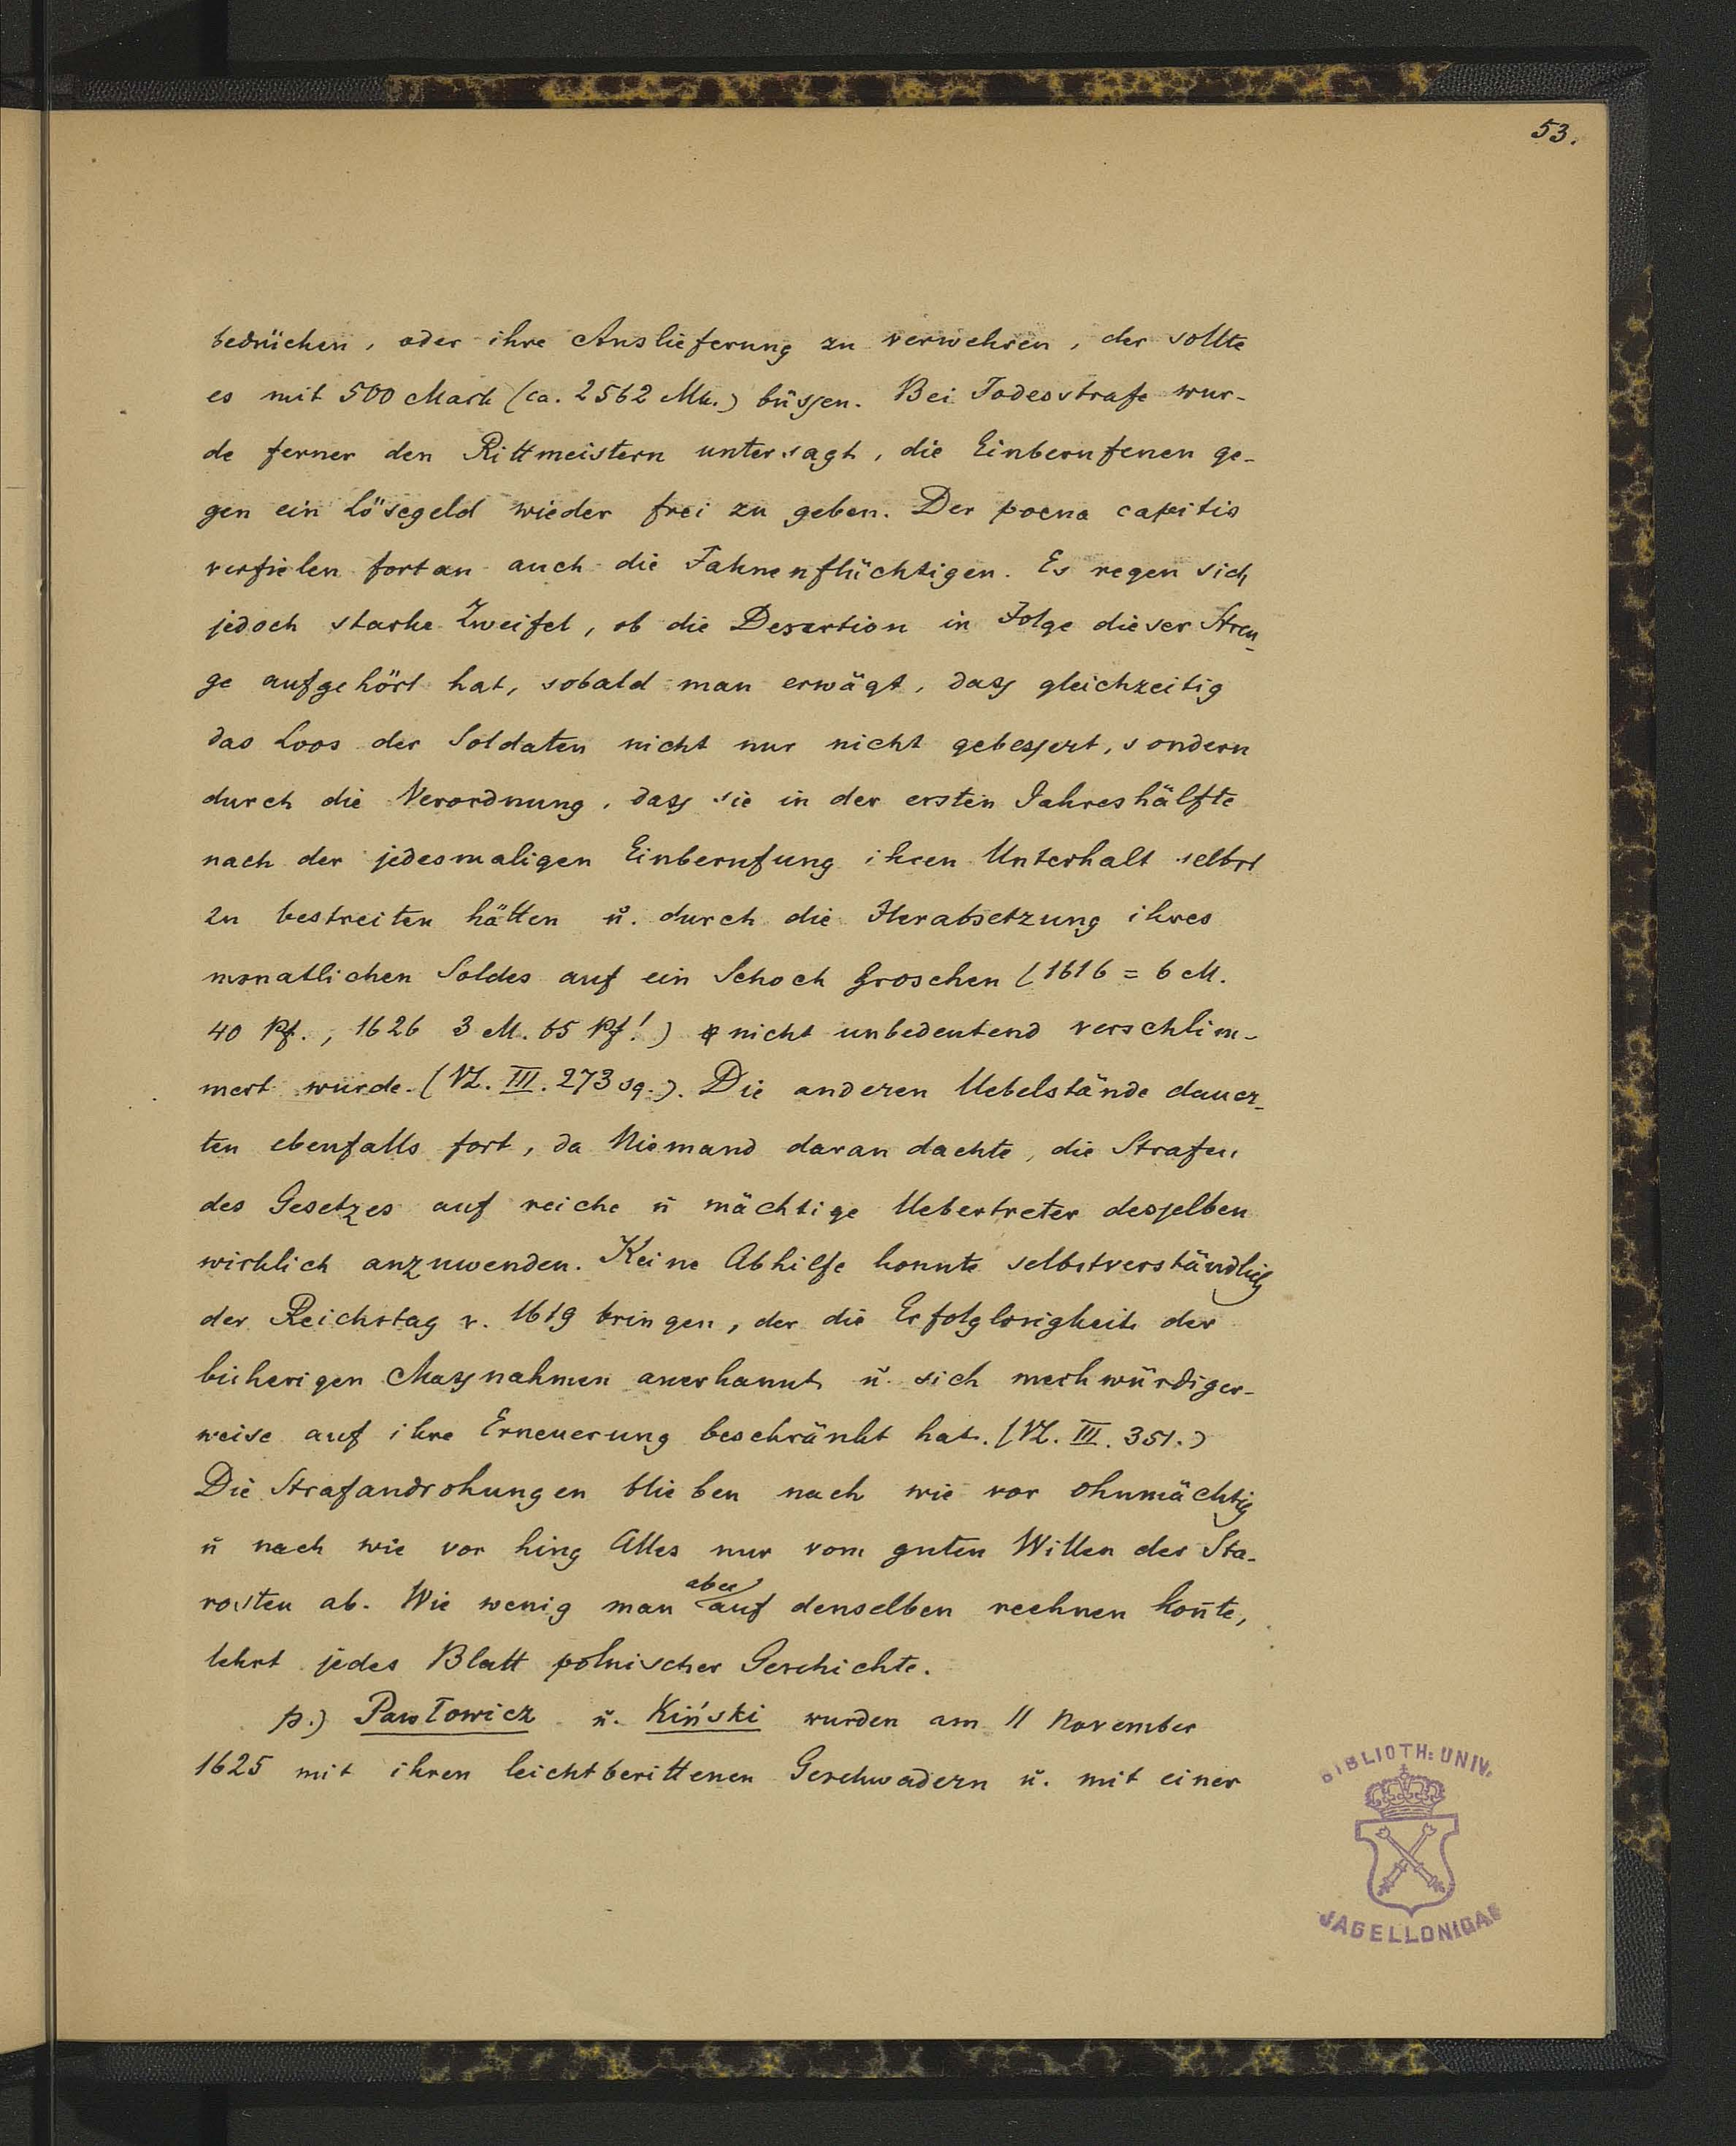 53.
bedrücken, oder ihre Auslieferung zu verwehren, der sollte
es mit 500 Mark (ca. 2562 Mk.) büssen. Bei Todesstrafe wur-
de ferner den Rittmeistern untersagt, die Einberufenen ge-
gen ein Lösegeld wieder frei zu geben. Der poena capitis
verfielen fortan auch die Fahnenflüchtigen. Es regen sich
jedoch starke Zweifel, ob die Desertion in Folge dieser Stren-
ge aufgehört hat, sobald man erwägt, dass gleichzeitig
das Loos der Soldaten nicht nur nicht gebessert, sondern
durch die Verordnung, dass sie in der ersten Jahreshälfte
nach der jedesmaligen Einberufung ihren Unterhalt selbst
zu bestreiten hätten u. durch die Herabsetzung ihres
monatlichen Soldes auf ein Schock Groschen (1616 = 6 M.
40 Pf., 1626 3 M. 65 Pf!) nicht unbedeutend verschlim-
mert wurde. (VL. III. 273 sq.). Die anderen Uebelstände dauer-
ten ebenfalls fort, da Niemand daran dachte, die Strafen
des Gesetzes auf reiche u mächtige Uebertreter desselben
wirklich anzuwenden. Keine Abhilfe konnte selbstverständlich
der Reichstag v. 1619 bringen, der die Erfolglosigkeit der
bisherigen Massnahmen anerkannt u. sich merkwürdiger-
weise auf ihre Erneuerung beschränkt hat. (VL. III. 351.)
Die Strafandrohungen blieben nach wie vor ohnmächtig
u nach wie vor hing Alles nur vom guten Willen der Sta-
rosten ab. Wie wenig man aber auf denselben rechnen kon̄te,
lehrt jedes Blatt polnischer Geschichte.
p.) Pawłowicz u. Kiński wurden am 11 November
1625 mit ihren leichtberittenen Geschwadern u. mit einer
BIBLIOTH: UNIV.
JAGELLONICAE